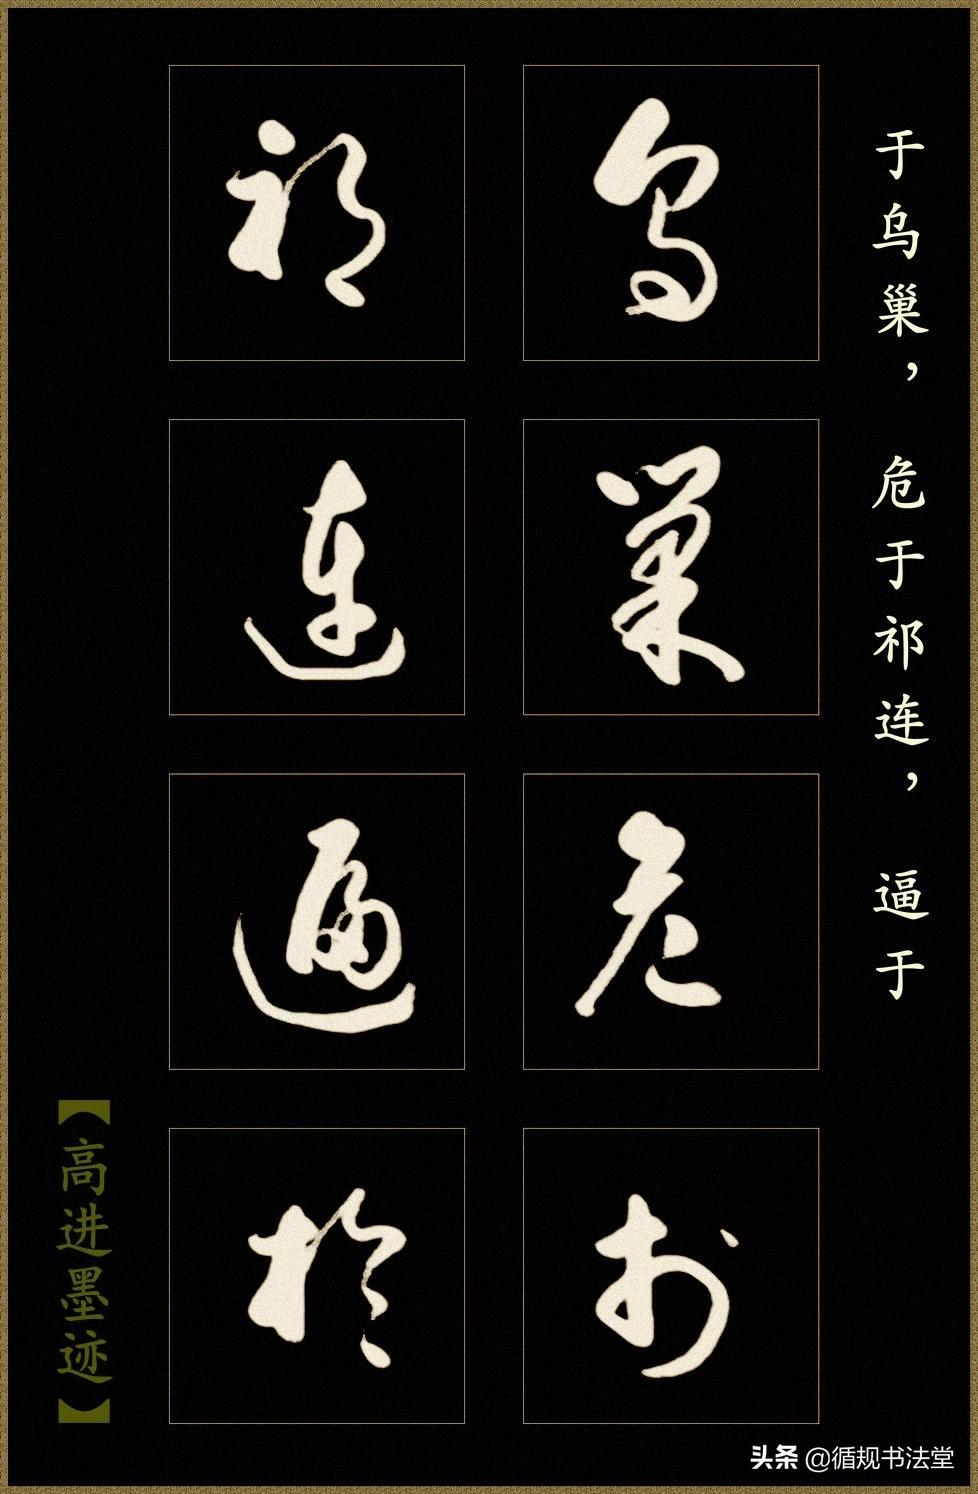 于乌巢，危于祁连，逼于
乌巢危於
祁连逼於
【高进墨迹】
头条 @循规书法堂